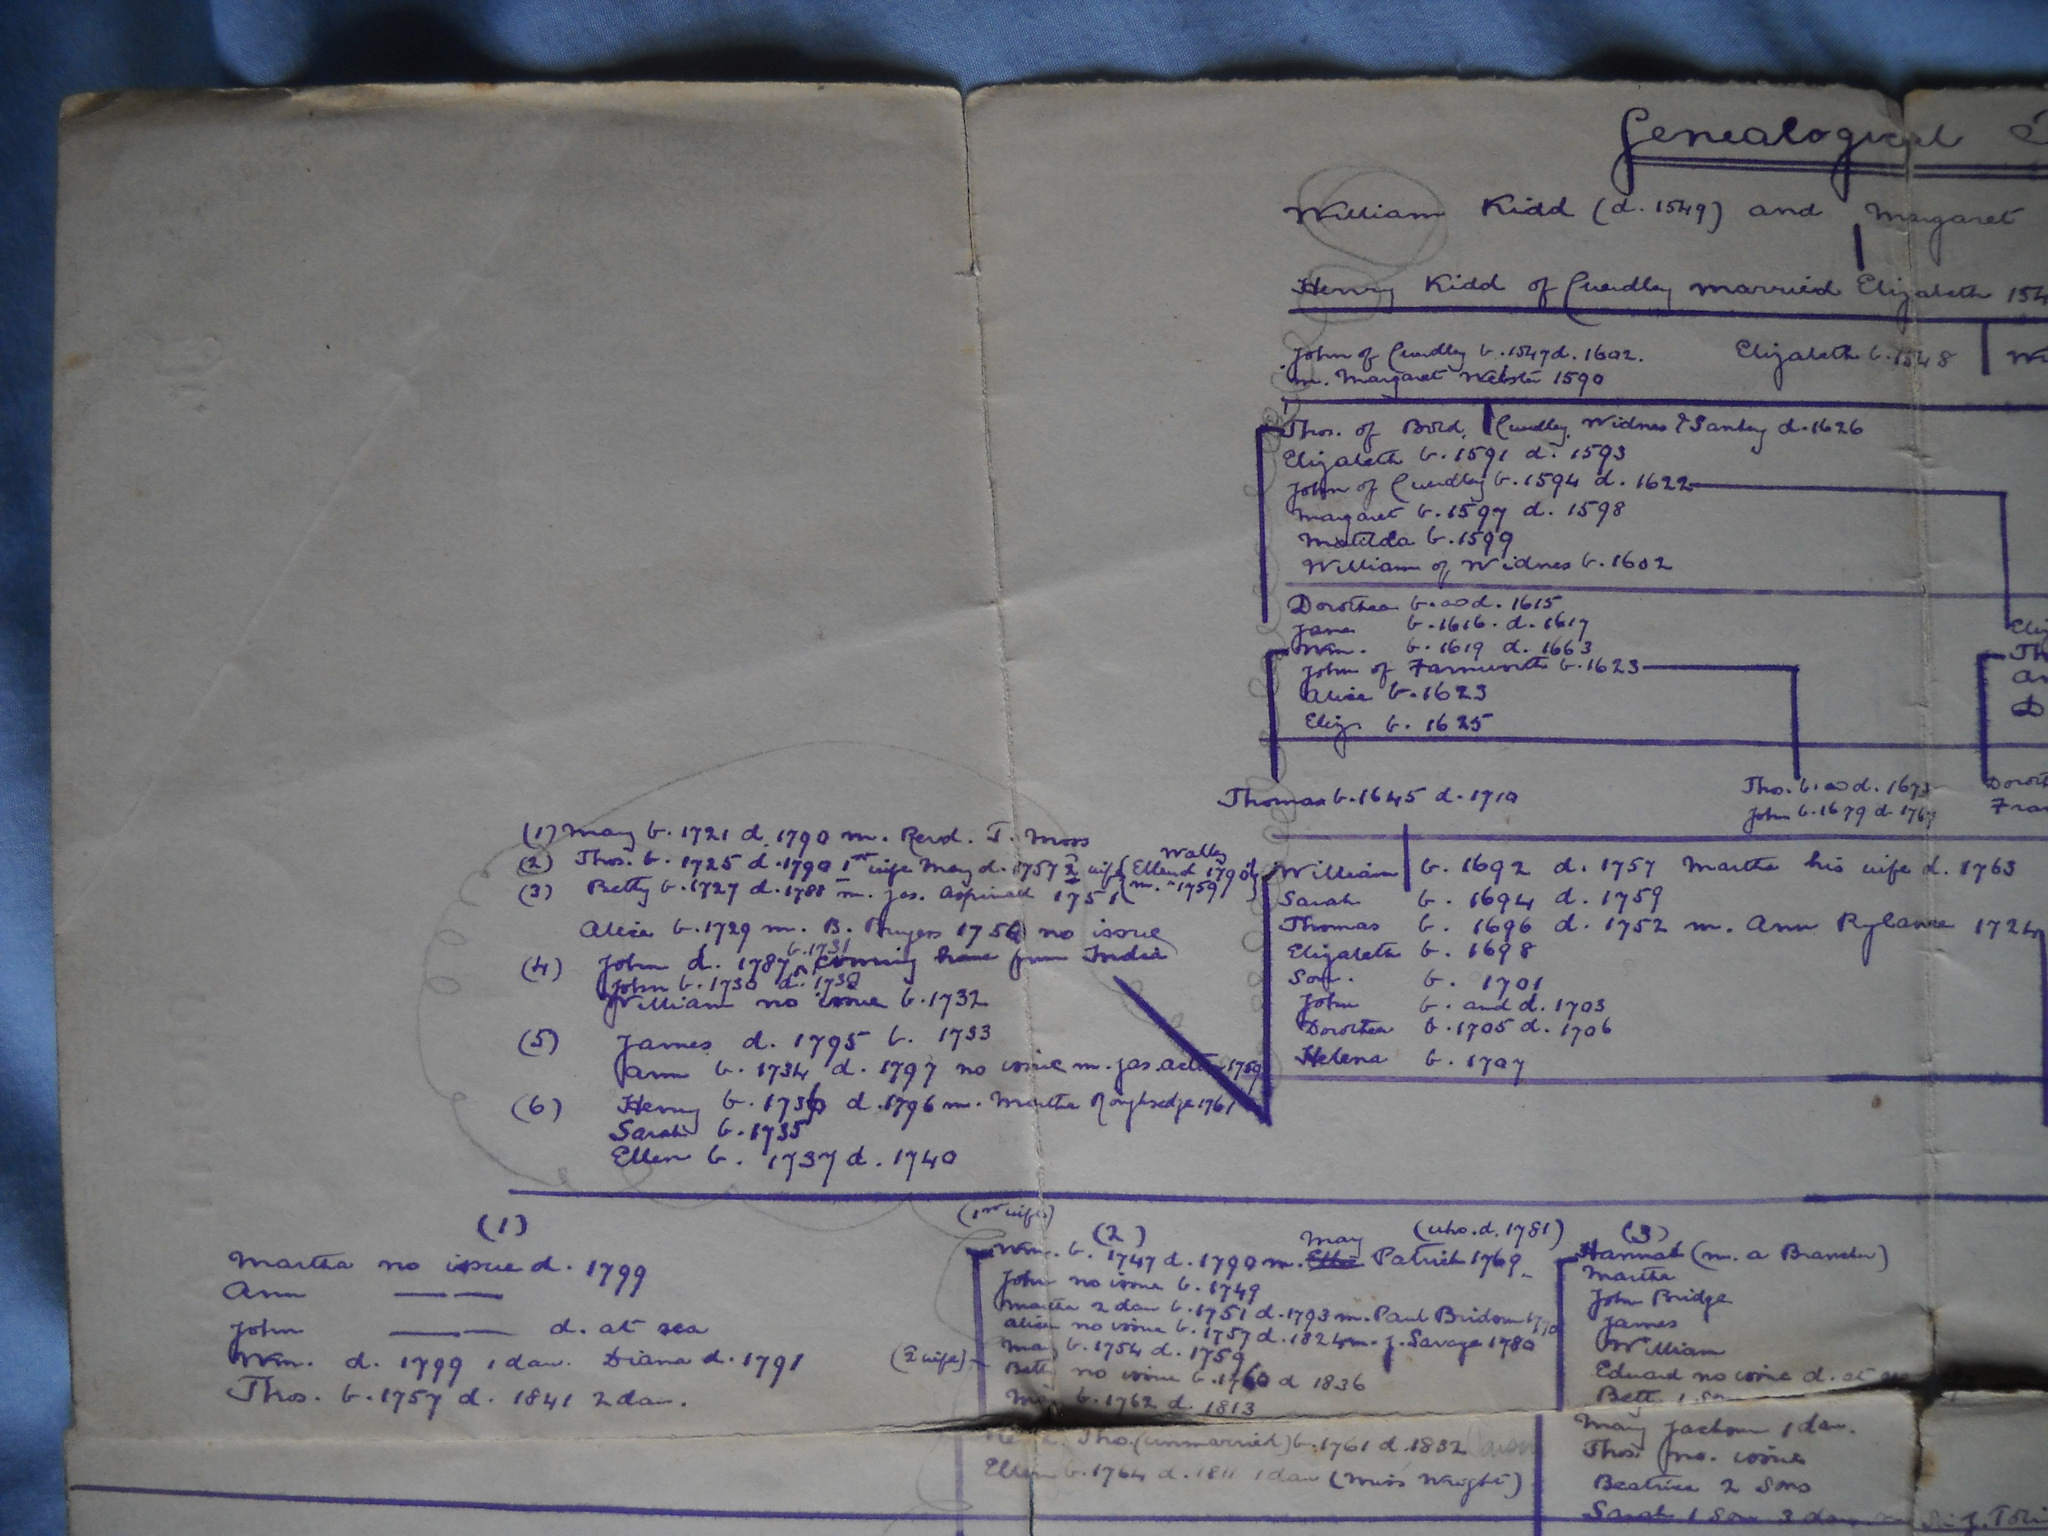 Genealogical
William Kidd (d. 1549) and Margaret
Henry Kidd of Cuerdley married Elizabeth 154
John of Cuerdley b. 1547 d. 1602. Elizabeth b. 1548 Wi
m. Margaret Webster 1590
Thos. of Bold, Cuerdley, Widnes & Sankey d. 1626
Elizabeth b. 1591 d. 1593
John of Cuerdley b. 1594 d. 1622
Margaret b. 1597 d. 1598
Matilda b. 1599
William of Widnes b. 1602
Dorothea b. and d. 1615
Jane b. 1616. d. 1617
Wm. b. 1619 d. 1663
John of Farnworth b. 1623
Alice b. 1623
Eliz. b. 1625
Eliz
Th
An
D
Thomas b. 1645 d. 1710
Tho. b. and d. 1673
John b. 1679 d
Dorot
Fra
William b. 1692 d. 1757 Martha his wife d. 1763
Sarah b. 1694 d. 1759
Thomas b. 1696 d. 1752 m. Ann Rylance 1724
Elizabeth b. 1698
Son. b. 1701
John b. and d. 1703
Dorothea b. 1705 d. 1706
Helena b. 1707
(1) Mary b. 1721 d. 1790 m. Revd. T. Moss
(2) Thos. b. 1725 d. 1790 1st wife Mary d. 1757 2 wife (Ellen Walley d 1790
(3) Betty b. 1727 d. 1788 m. Jas. Aspinall 1751 (m. " 1759)
Alice b. 1729 m. B. 1756 no issue
(4) John d. 1787 b. 1731 coming home from India
John b. 1730 d.
William no issue b. 1732
(5) James d. 1795 b. 1733
Ann b. 1734 d. 1797 no issue m. Jas. 1759
(6) Henry b. 1736 d. 1796 m. Martha Roughsedge 1761
Sarah b. 1735
Ellen b. 1737 d. 1740
(1)
Martha no issue d. 1799
Ann — —
John — — d. at sea
Wm. d. 1799 1 dau. Diana d. 1791
Thos. b. 1757 d. 1841 2 dau.
(1st wife) (2) (who. d. 1781)
Wm. b. 1747 d. 1790 m. Mary Patrick 1769
John no issue b. 1749
Martha 2 dau b. 1751 d. 1793 m. Paul Bridson 1770
Alice no issue b. 1757 d. 1824 m. J. Savage 1780
May b. 1754 d. 1759
(2 wife) Betty no issue b. 1760 d 1836
b. 1762 d. 1813
Tho. (unmarried) b. 1761 d. 1832
Ellen b. 1764 d. 1811 1 dau (Miss Wright)
(3)
Hannah (m. a Brancker)
Martha
John Bridge
James
William
Edward no issue d. at sea
Bett. 1 Son
Mary Jackson 1 dau.
Thos. no. issue
Beatrice 2 Sons
Sarah 1 Son 3 dau